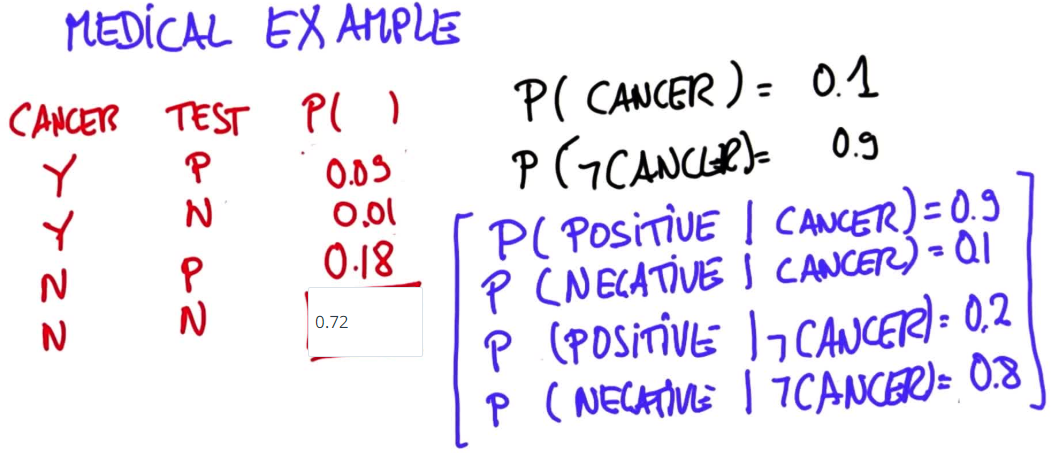 MEDICAL EXAMPLE
CANCER TEST P( )
Y P 0.09
Y N 0.01
N P 0.18
N N 0.72
P( CANCER ) = 0.1
P (¬CANCER)= 0.9
P( POSITIVE | CANCER) = 0.9
P (NEGATIVE | CANCER) = 0.1
P (POSITIVE | ¬CANCER) = 0.2
P (NEGATIVE | ¬CANCER)= 0.8